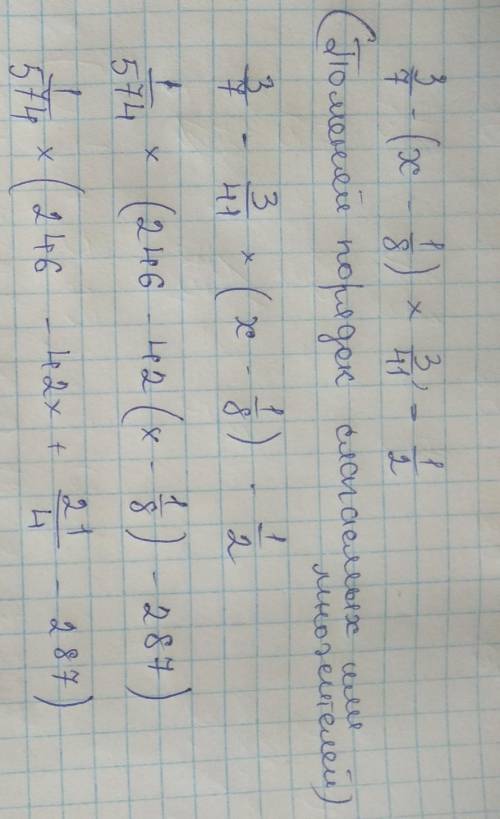 3/7 - (x - 1/8) × 3/41 - 1/2
(Поменяй порядок слагаемых или
множителей)
3/7 - 3/41 × (x - 1/8) - 1/2
1/574 × (246 - 42(x - 1/8) - 287)
1/574 × (246 - 42x + 21/4 - 287)